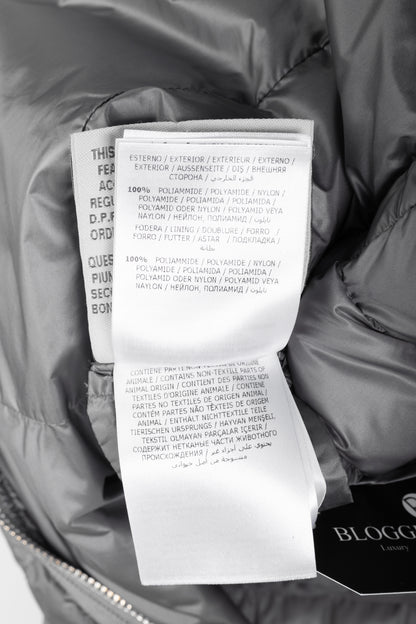 THIS
FEA
AC
REGU
D.P.R
ORD
QUES
PIUM
SECO
BON
ESTERNO / EXTERIOR / EXTERIEUR / EXTERNO /
EXTERIOR / AUSSENSEITE / DIŞ / ВНЕШНЯЯ
СТОРОНА / الجزء الخارجي
100% POLIAMMIDE / POLYAMIDE / NYLON /
POLYAMIDE / POLIAMIDA / POLIAMIDA /
POLYAMID ODER NYLON / POLYAMID VEYA
NAYLON / НЕЙЛОН, ПОЛИАМИД / نايلون
FODERA / LINING / DOUBLURE / FORRO /
FORRO / FUTTER / ASTAR / ПОДКЛАДКА /
بطانة
100% POLIAMMIDE / POLYAMIDE / NYLON /
POLYAMIDE / POLIAMIDA / POLIAMIDA /
POLYAMID ODER NYLON / POLYAMID VEYA
NAYLON / НЕЙЛОН, ПОЛИАМИД / نايلون
CONTIENE PARTI NON TESSILI DI ORIGINE
ANIMALE / CONTAINS NON-TEXTILE PARTS OF
ANIMAL ORIGIN / CONTIENT DES PARTIES NON
TEXTILES D'ORIGINE ANIMALE / CONTIENE
PARTES NO TEXTILES DE ORIGEN ANIMAL /
CONTÉM PARTES NÃO TÊXTEIS DE ORIGEM
ANIMAL / ENTHÄLT NICHTTEXTILE TEILE
TIERISCHEN URSPRUNGS / HAYVAN MENŞELİ,
TEKSTİL OLMAYAN PARÇALAR İÇERİR /
СОДЕРЖИТ НЕТКАНЫЕ ЧАСТИ ЖИВОТНОГО
ПРОИСХОЖДЕНИЯ / يحتوي على أجزاء غير
منسوجة من أصل حيواني
BLOGG
Luxury